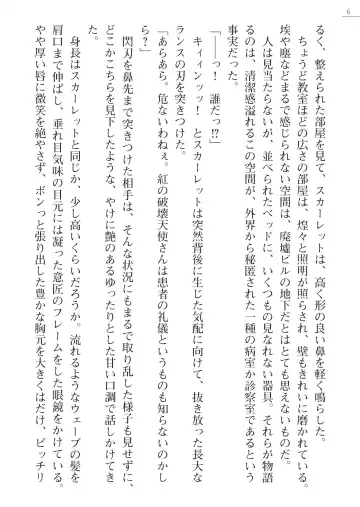 6
るく、整えられた部屋を見て、スカーレットは、高く形の良い鼻を軽く鳴らした。
ちょうど教室ほどの広さの部屋は、煌々と照明が照らされ、壁もきれいに磨かれている。
埃や塵などまるで感じられない空間は、廃墟ビルの地下だとはとても思えないものだ。
人は見当たらないが、並べられたベッドに、いくつもの見なれない器具。それらが物語
るのは、清潔感溢れるこの空間が、外界から秘匿された一種の病室か診察室であるという
事実だった。
「――っ！　誰だっ!?」
キィィンッッ！　とスカーレットは突然背後に生じた気配に向けて、抜き放った長大な
ランスの刃を突きつけた。
「あらあら、危ないわねぇ。紅の破壊天使さんは患者の礼儀というものも知らないのかし
ら？」
閃刃を鼻先まで突きつけた相手は、そんな状況にもまるで取り乱した様子も見せずに、
どこかこちらを見下したような、やけに艶のあるゆったりとした甘い口調で話しかけてきた。
身長はスカーレットと同じか、少し高いくらいだろうか。流れるようなウェーブの髪を
肩口まで伸ばし、垂れ目気味の目元には凝った意匠のフレームをした眼鏡をかけている。
やや厚い唇に微笑を絶やさず、ボンっと張り出した豊かな胸元を大きくはだけ、ピッチリ